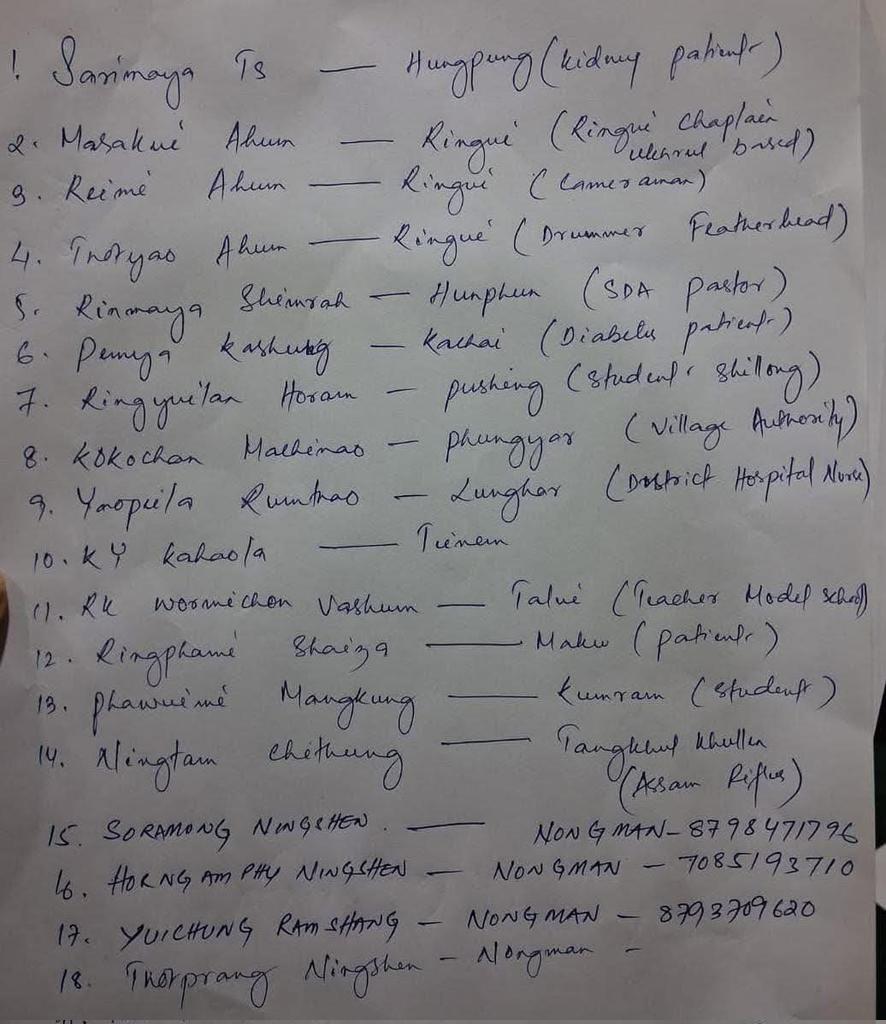 1 Sarimaya Ts — Hungpung (kidney patient)
2. Masakui Ahum — Ringui (Ringui chaplain
ukhrul based)
3. Reimi Ahum — Ringui (Cameraman)
4. Thotyao Ahum — Ringui (Drummer Featherhead)
5. Rinmaya Shimrah — Hunphun (SDA pastor)
6. Pemya Kashung — Kachai (Diabetes patient)
7. Ringyuilan Horam — pushing (student Shillong)
8. Kokochan Machinao — phungyar (Village Authority)
9. Yaopeila Rumthao — Lunghar (District Hospital Nurse)
10. KY Kahaola — Teinem
11. RK Wormichon Vashum — Talui (Teacher Model School)
12. Ringphami Shaiza — Maku (patient)
13. Phawuimi Mangkung — Kumram (student)
14. Ningtam Chithung — Tangkhul Khullen
(Assam Rifles)
15. SORAMONG NINGSHEN. — NONGMAN - 8798471796
16. HORNGAM PHY NINGSHEN — NONGMAN — 7085193710
17. YUICHUNG RAMSHANG — NONGMAN — 8793709620
18. Thotprang Ningshen — Nongman —